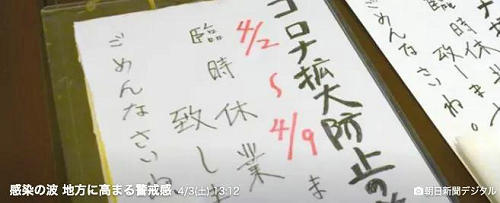 コロナ拡大防止の
4/2
〜
4/9
ま
臨時休業
致しま
ごめんなさいね
感染の波 地方に高まる警戒感 4/3(土) 13:12
朝日新聞デジタル